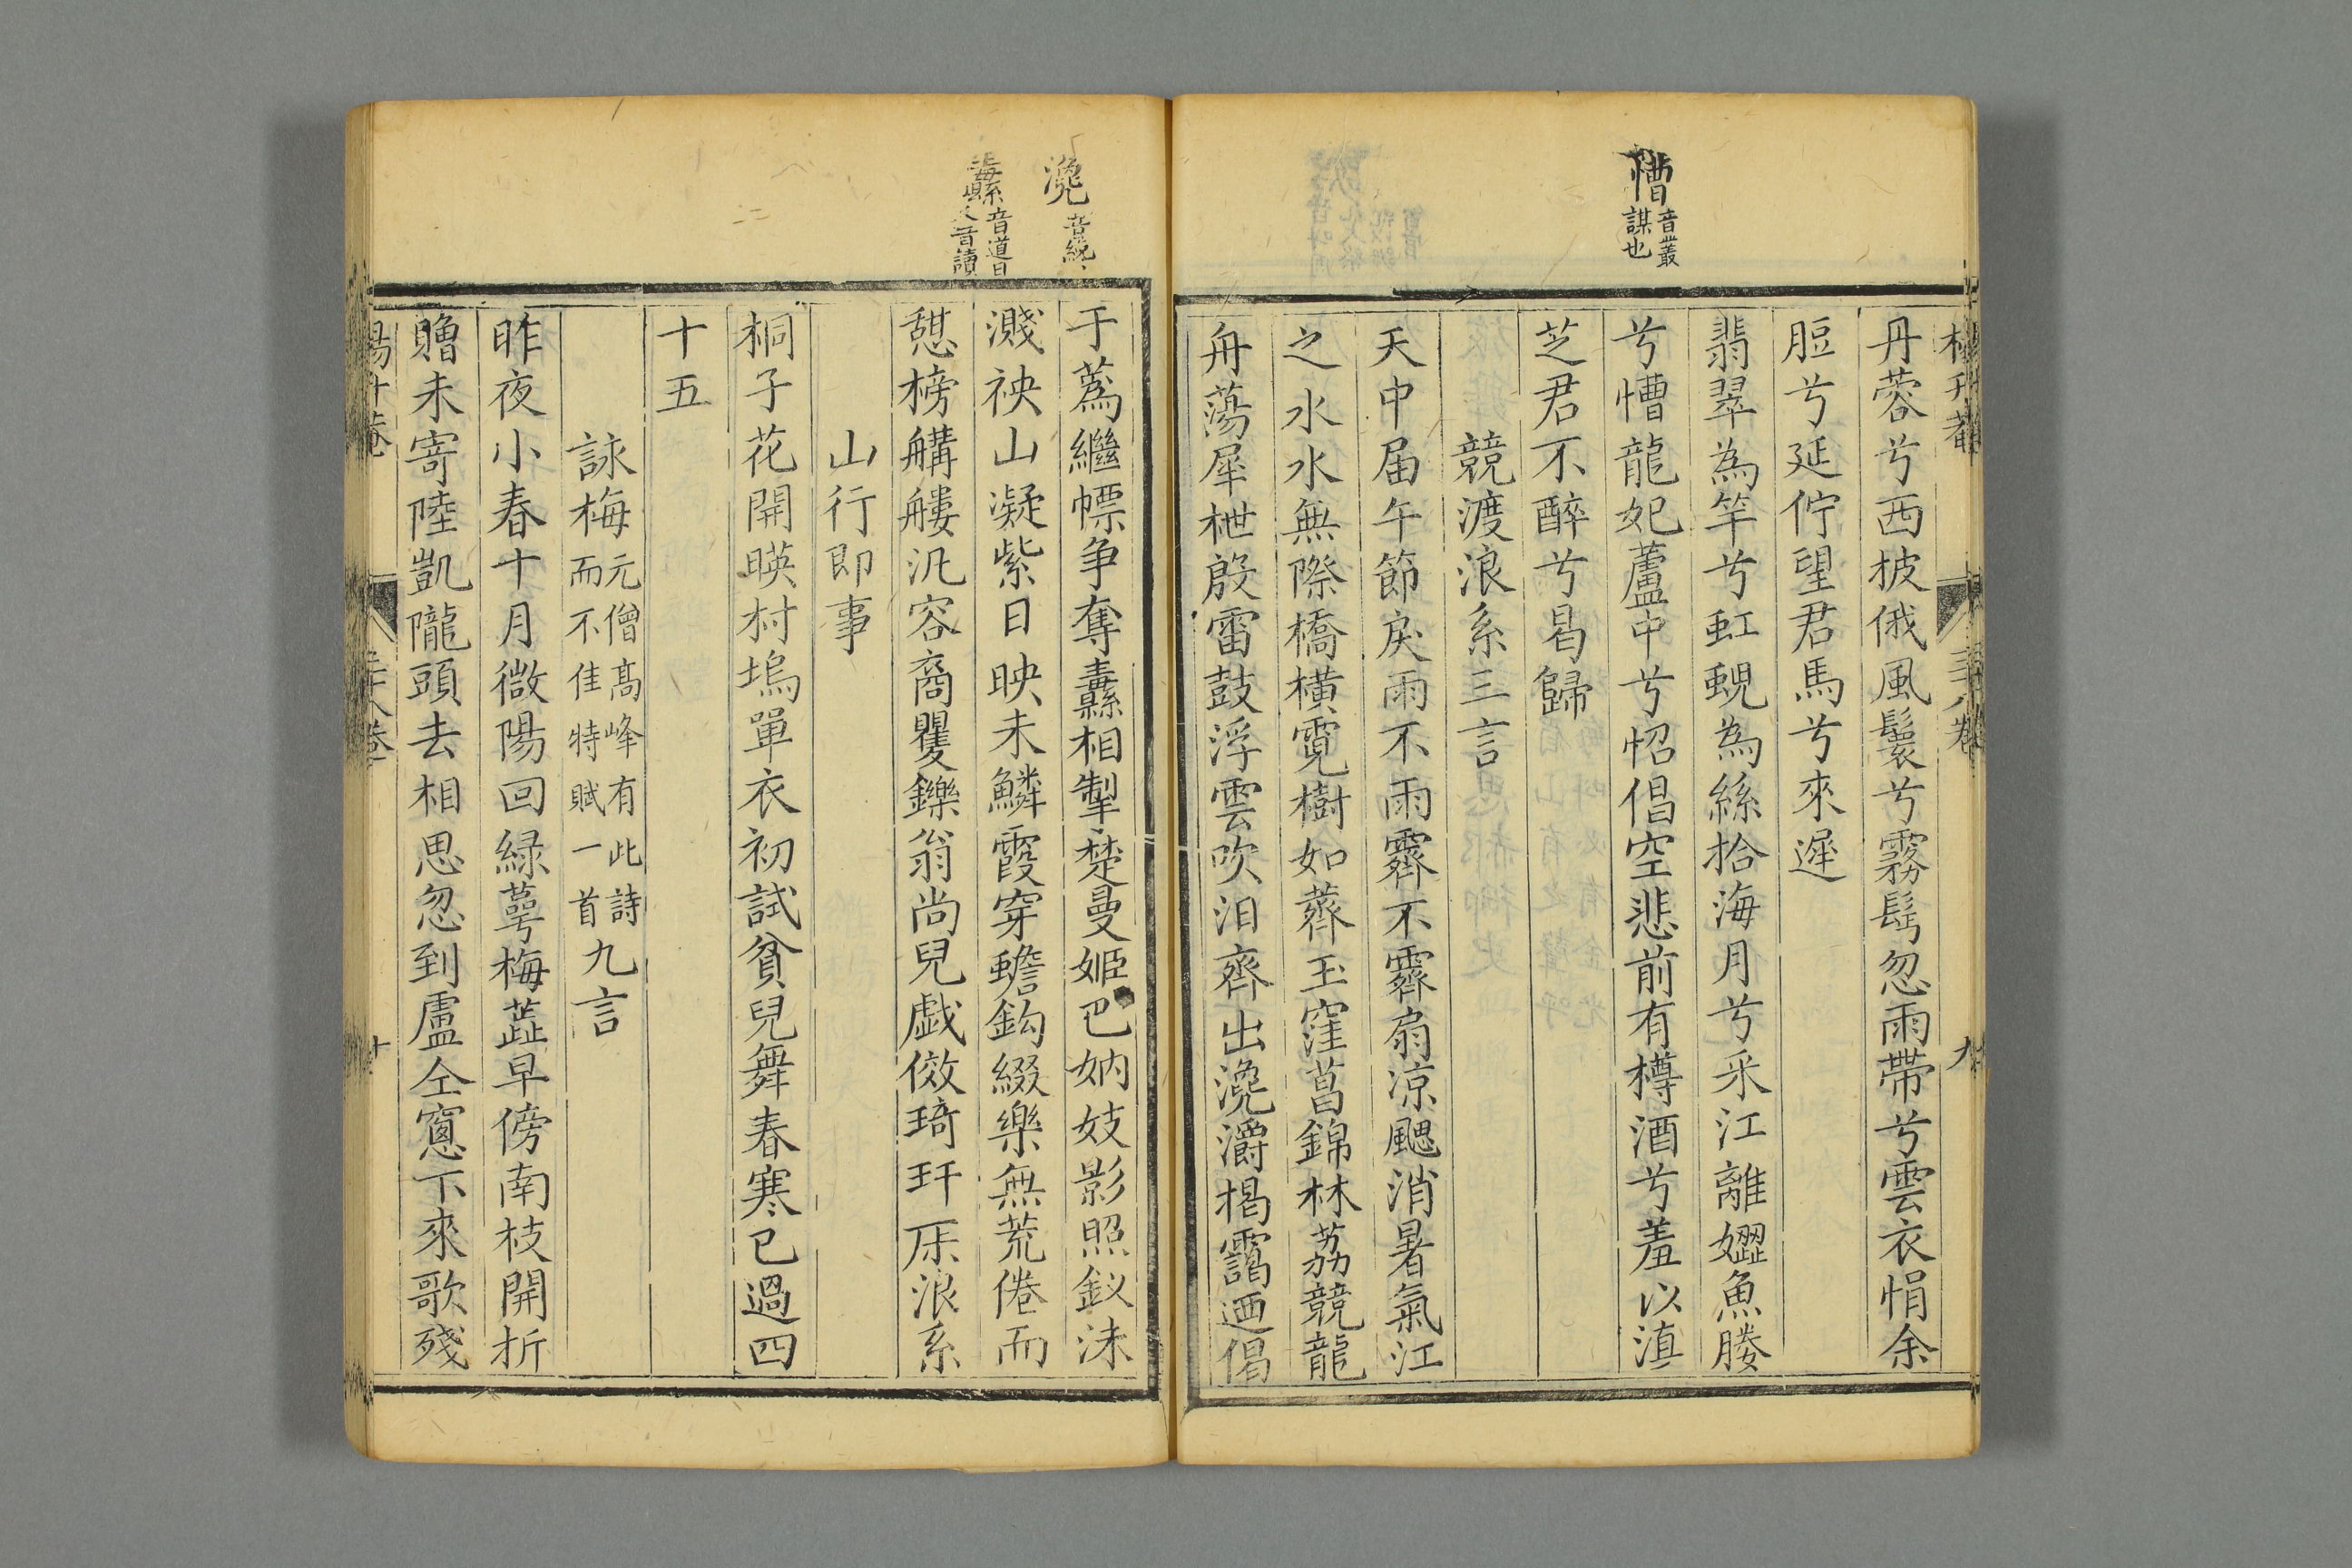 慒音叢
謀也
丹蓉兮西披俄風鬟兮霧髩忽雨帶兮雲衣悁余
脰兮延佇望君馬兮來遲
翡翠為竿兮虹蜺為絲拾海月兮采江離嬹魚媵
兮慒龍妃蘆中兮怊倡空悲前有樽酒兮羞以滇
芝君不醉兮曷歸
競渡浪系三言
天中届午節戾雨不雨霽不霽扇凉颸消暑氣江
之水水無際橋橫霓樹如薺玉窪菖錦林荔競龍
舟蕩犀枻殷雷鼓浮雲吹汨齊出㶕灂揭靄迺偈
九
㶕音繞
纛音道
又音讀
于蔿繼幖争奪纛相掣楚曼姬巴妠妓影照釵沫
濺袂山凝紫日映未鱗霞穿蟾鈎綴樂無荒倦而
憇榜艜艛汎容裔矍鑠翁尚兒戯傚琦玕厈浪系
山行即事
桐子花開暎村塢單衣初試貧兒舞春寒已過四
十五
詠梅元僧髙峰有此詩
而不佳特賦一首九言
昨夜小春十月微陽回緑萼梅蕋早傍南枝開折
贈未寄陸凱隴頭去相思忽到盧仝窻下來歌殘
十